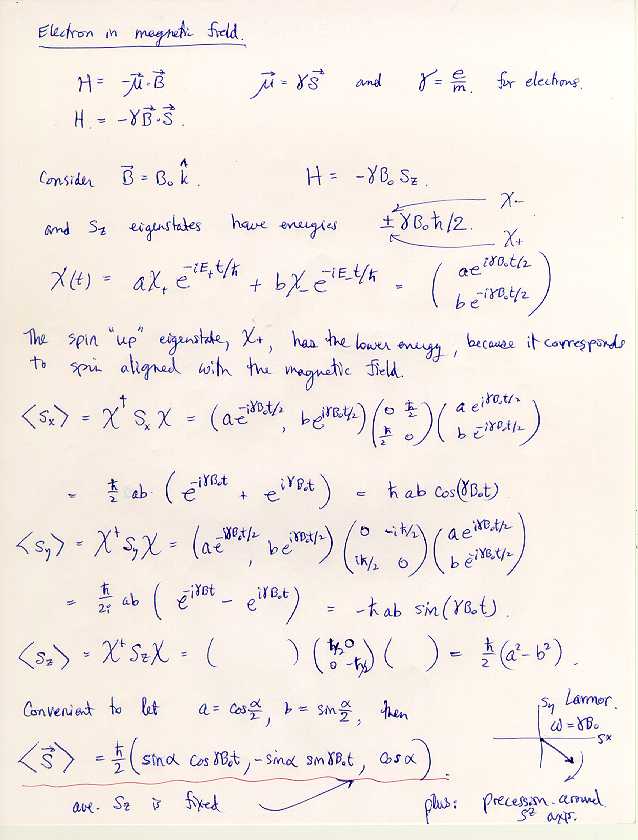 Electron in magnetic field.
H = -μ⃗·B⃗    μ⃗ = γS⃗ and γ = e/m for electrons.
H = -γB⃗·S⃗.
Consider B⃗ = B₀k̂.    H = -γB₀S_z.
and S_z eigenstates have energies ±γB₀ħ/2.    χ₋
χ₊
χ(t) = aχ₊e^{-iE₊t/ħ} + bχ₋e^{-iE₋t/ħ} = (ae^{iγB₀t/2}; be^{-iγB₀t/2})
The spin "up" eigenstate, χ₊, has the lower energy, because it corresponds
to spin aligned with the magnetic field.
<S_x> = χ†S_xχ = (ae^{-iγB₀t/2}, be^{iγB₀t/2}) (0 ħ/2; ħ/2 0) (ae^{iγB₀t/2}; be^{-iγB₀t/2})
= ħ/2 ab (e^{-iγB₀t} + e^{iγB₀t}) = ħab cos(γB₀t)
<S_y> = χ†S_yχ = (ae^{-iγB₀t/2}, be^{iγB₀t/2}) (0 -iħ/2; iħ/2 0) (ae^{iγB₀t/2}; be^{-iγB₀t/2})
= ħ/2i ab (e^{-iγBt} - e^{iγB₀t}) = -ħab sin(γB₀t).
<S_z> = χ†S_zχ = (    ) (ħ/2 0; 0 -ħ/2) (    ) = ħ/2 (a²-b²).
Convenient to let a = cos α/2, b = sin α/2, then
<S⃗> = ħ/2 (sinα cosγB₀t, -sinα sinγB₀t, cosα).
S_y Larmor.
ω = γB₀
S_x
ave. S_z is fixed    plus: precession around
S_z axis.